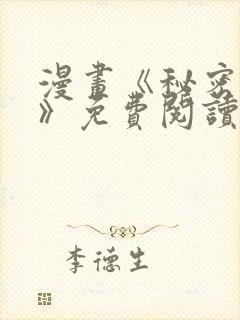 漫畫《秘密
》免費閱讀
李德生